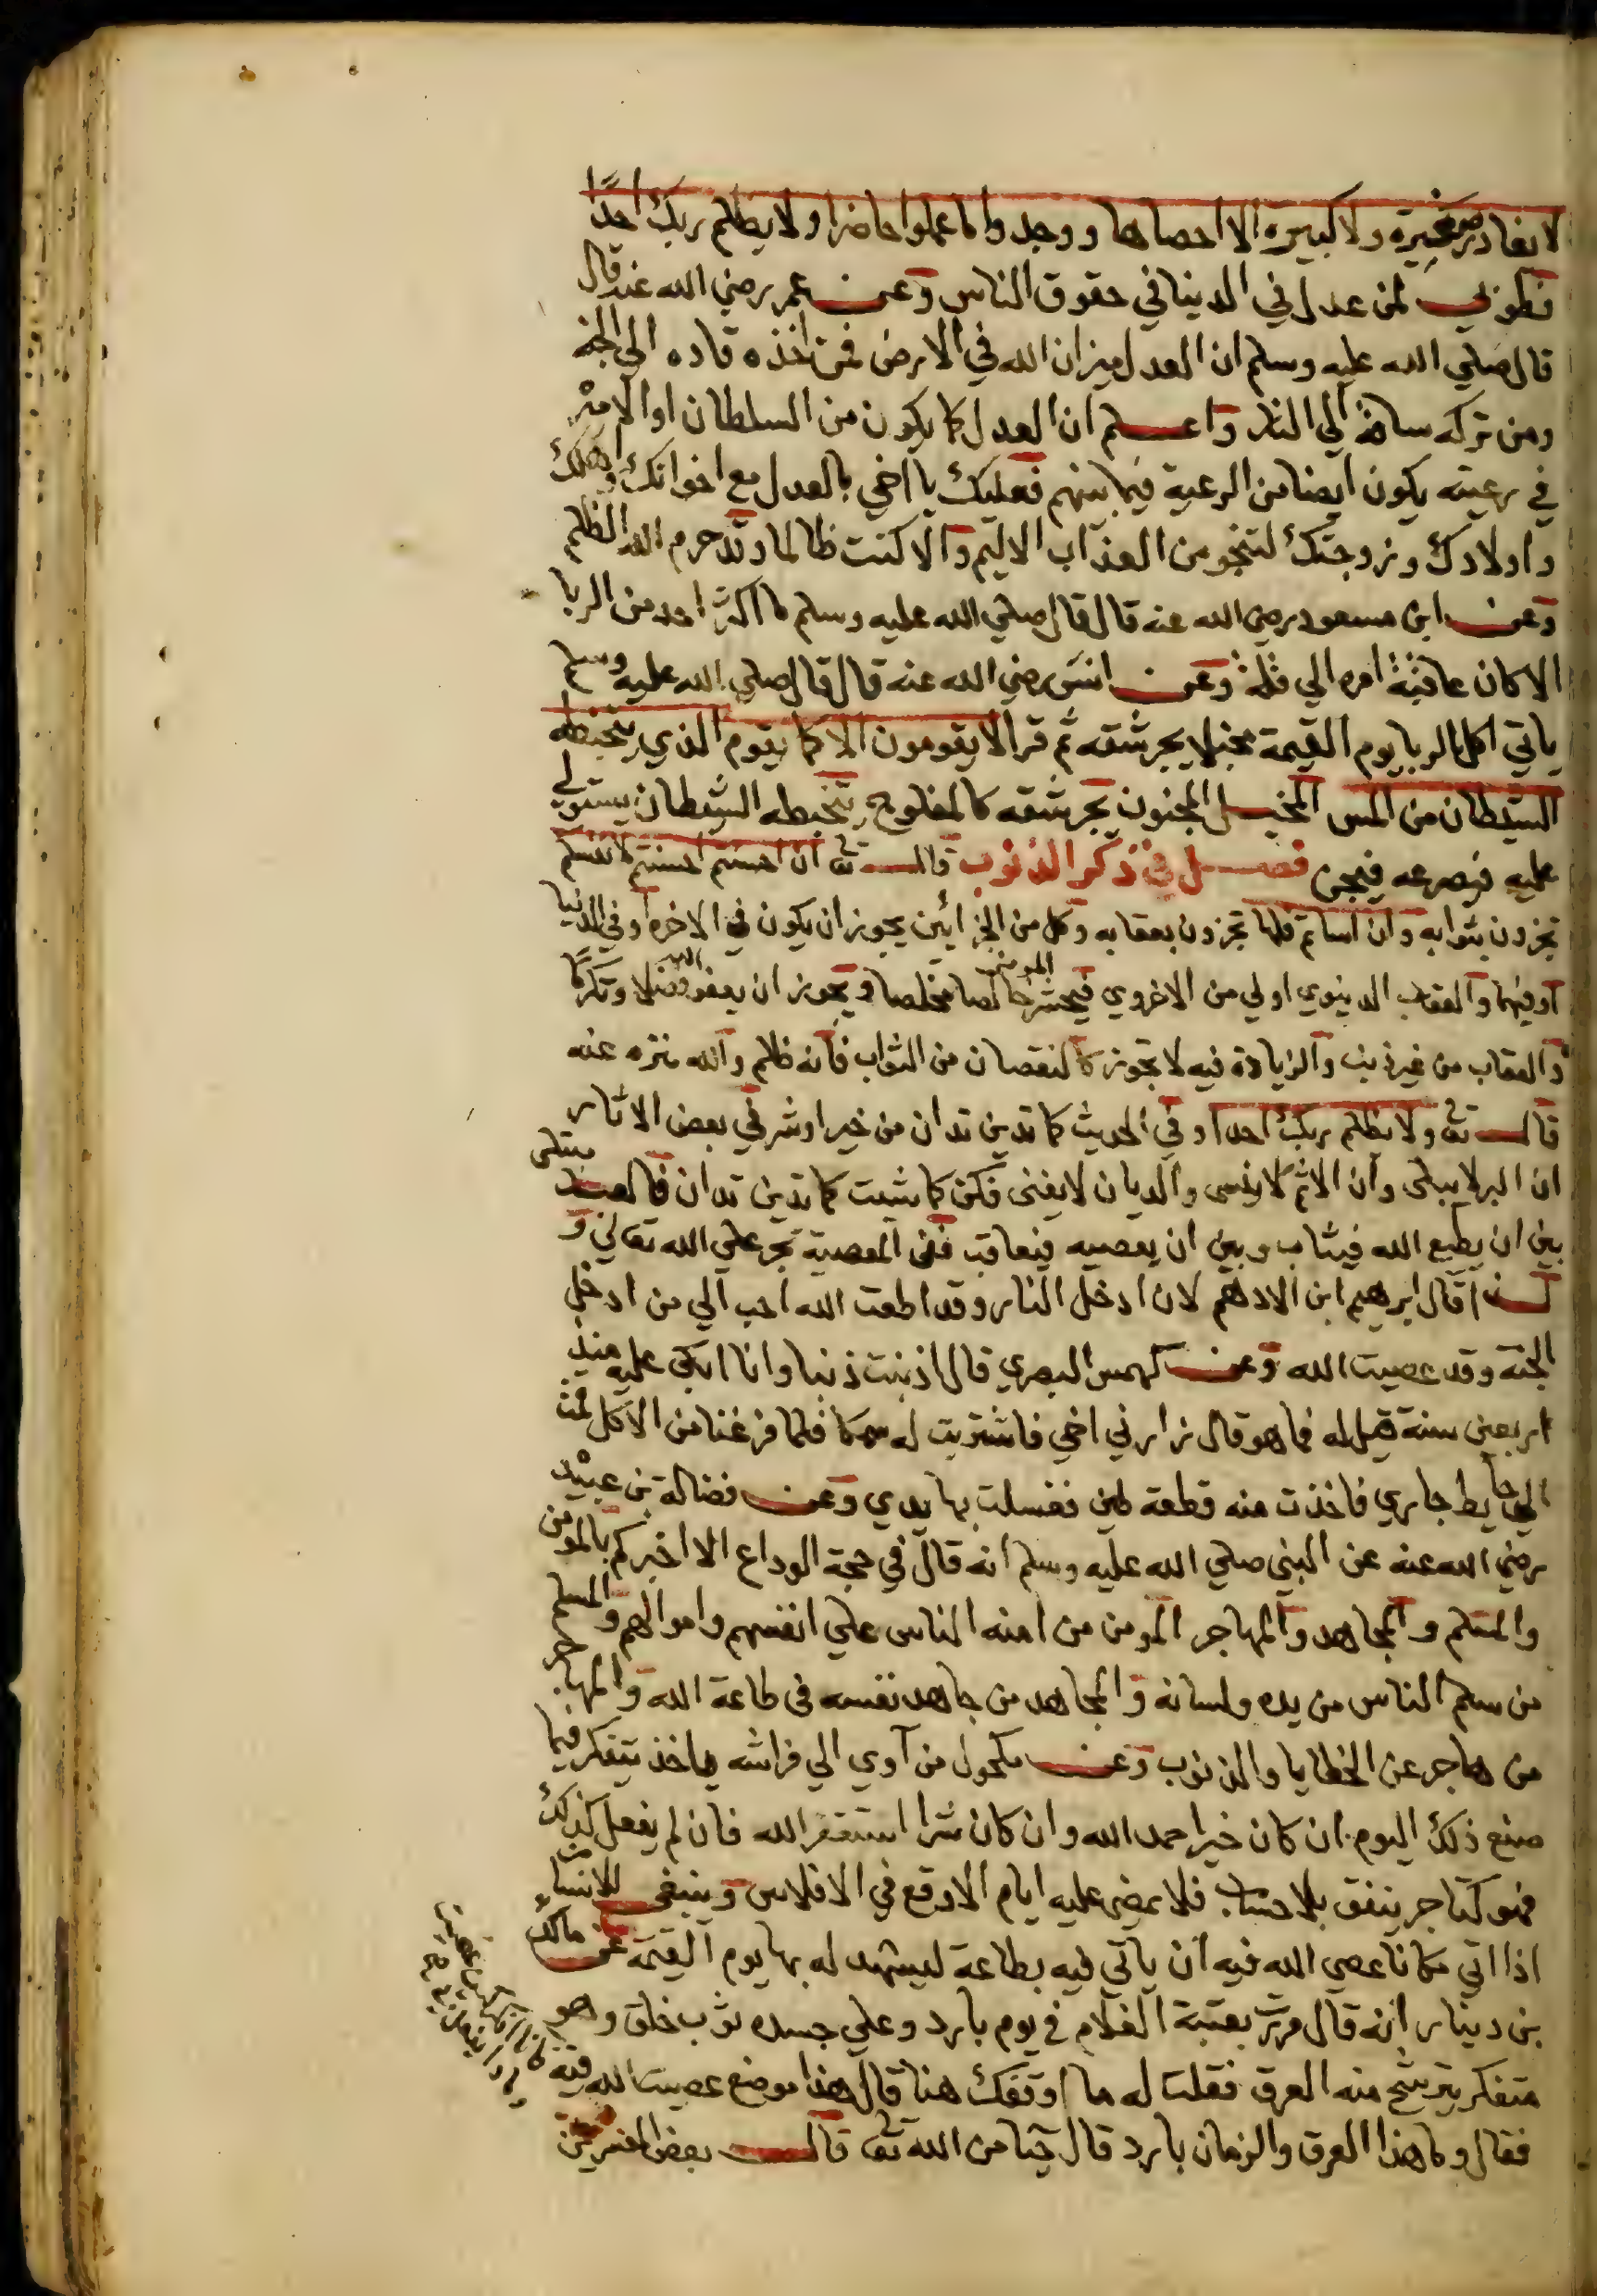 لا يغادر صغيرة ولا كبيرة الا احصاها ووجدوا ما عملوا حاضرا ولا يظلم ربك احدًا
فطوبي لمن عدل في الدينا في حقوق الناس وعن عمر رضي الله عنه قال
قال صلي الله عليه وسلم ان العدل ميزان الله في الارض فمن اخذه قاده الي الجنة
ومن تركه ساقه الي النار واعلم ان العدل كما يكون من السلطان او الامير
في رعيته يكون ايضا من الرعية فيما بينهم فعليك يا اخي بالعدل مع اخوانك واهلك
واولادك وزوجتك لتنجو من العذاب الاليم والا كنت ظالما وقد حرم الله الظلم
وعن ابن مسعود رضي الله عنه قال قال صلي الله عليه وسلم ما اكثر احد من الربا
الا كان عاقبة امره الي قلة وعن انس رضي الله عنه قال قال صلي الله عليه وسلم
ياتي اكل الربا يوم القيمة مخبلا يجر شقه ثم قرا لا يقومون الا كما يقوم الذي يتخبطه
الشيطان من المس المخبل المجنون يجر شقه كالمفلوج يتخبطه الشيطان يستولي
عليه فيصرعه فيجن فصل في ذكر الذنوب قال تع ان احسنتم احسنتم لانفسكم
تجزون بثوابه وان اساتم فلها تجزون بعقابه وكل من الجزائين يجوز ان يكون في الاخره او في الدنيا
او فيهما والعقاب الدينوي اولي من الاخروي فيحشر المومن خالصا مخلصا ويجوز ان يعفو الله فضلا وتكرمًا
والعقاب من غير ذنب والزيادة فيه لا تجوز كالنقصان من الثواب فانه ظلم والله منزه عنه
قال تع ولا يظلم ربك احدا وفي الحديث كما تدين تدان من خير او شر في بعض الاثار
ان البر لا يبلى وان الاثم لا ينسى والديان لا يفنى فكن كما شيت كما تدين تدان فالعبد مبتلى
بين ان يطيع الله فيثاب وبين ان يعصيه فيعاقب فان المعصية تجر علي الله تعالي و
لهذا قال ابرهيم ابن الادهم لان ادخل النار وقد اطعت الله احب الي من ادخل
الجنة وقد عصيت الله وعن كهمس البصري قال اذنبت ذنبا وانا ابكي عليه منذ
اربعين سنة قيل له فما هو قال زارني اخي فاشتريت له سمكا فلما فرغنا من الاكل قمت
الي حايط جاري فاخذت منه قطعة طين فغسلت بها يدي وعن فضالة بن عبيد
رضي الله عنه عن النبي صلي الله عليه وسلم انه قال في حجة الوداع الا اخبركم بالمومن
والمسلم والمجاهد والمهاجر المومن من امنه الناس علي انفسهم واموالهم والمسلم
من سلم الناس من يده ولسانه والمجاهد من جاهد نفسه في طاعة الله والمهاجر
من هاجر عن الخطايا والذنوب وعن مكحول من آوي الي فراشه ياخذ يتفكر فيما
صنع ذلك اليوم ان كان خيرا حمد الله وان كان شرا استغفر الله فان لم يفعل كذلك
فهو كتاجر ينفق بلا حساب فلا يمضي عليه ايام الا وقع في الافلاس وينبغي للانسان
اذا اتي مكانا عصي الله فيه ان ياتي فيه بطاعة ليشهد له بها يوم القيمة عن مالك
بن دينار انه قال مررت بعتبة الغلام في يوم بارد وعلي جسده ثوب خلق وهو
متفكر يترشح منه العرق فقلت له ما اوقفك هنا قال هذا موضع عصيت الله فيه
فقال وما هذا العرق والزمان بارد قال حيا من الله تع قال بعض المفسرين